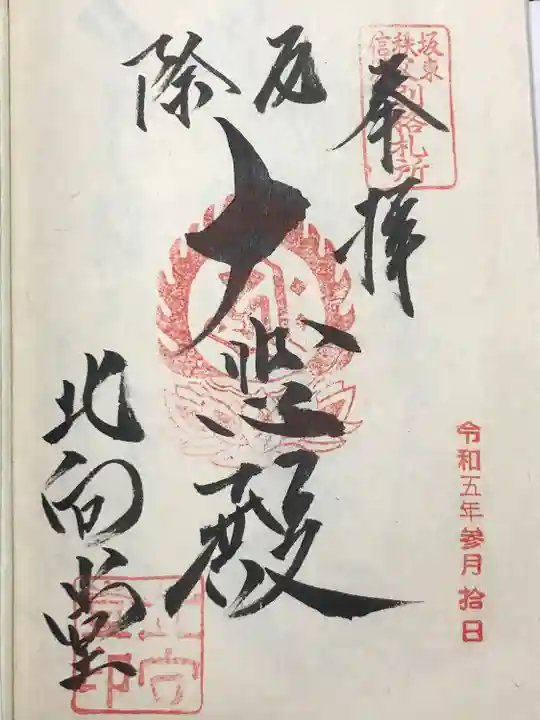 坂東
秩父
信
別格札所
奉拝
厄除
大悲殿
北向堂
令和五年参月拾日